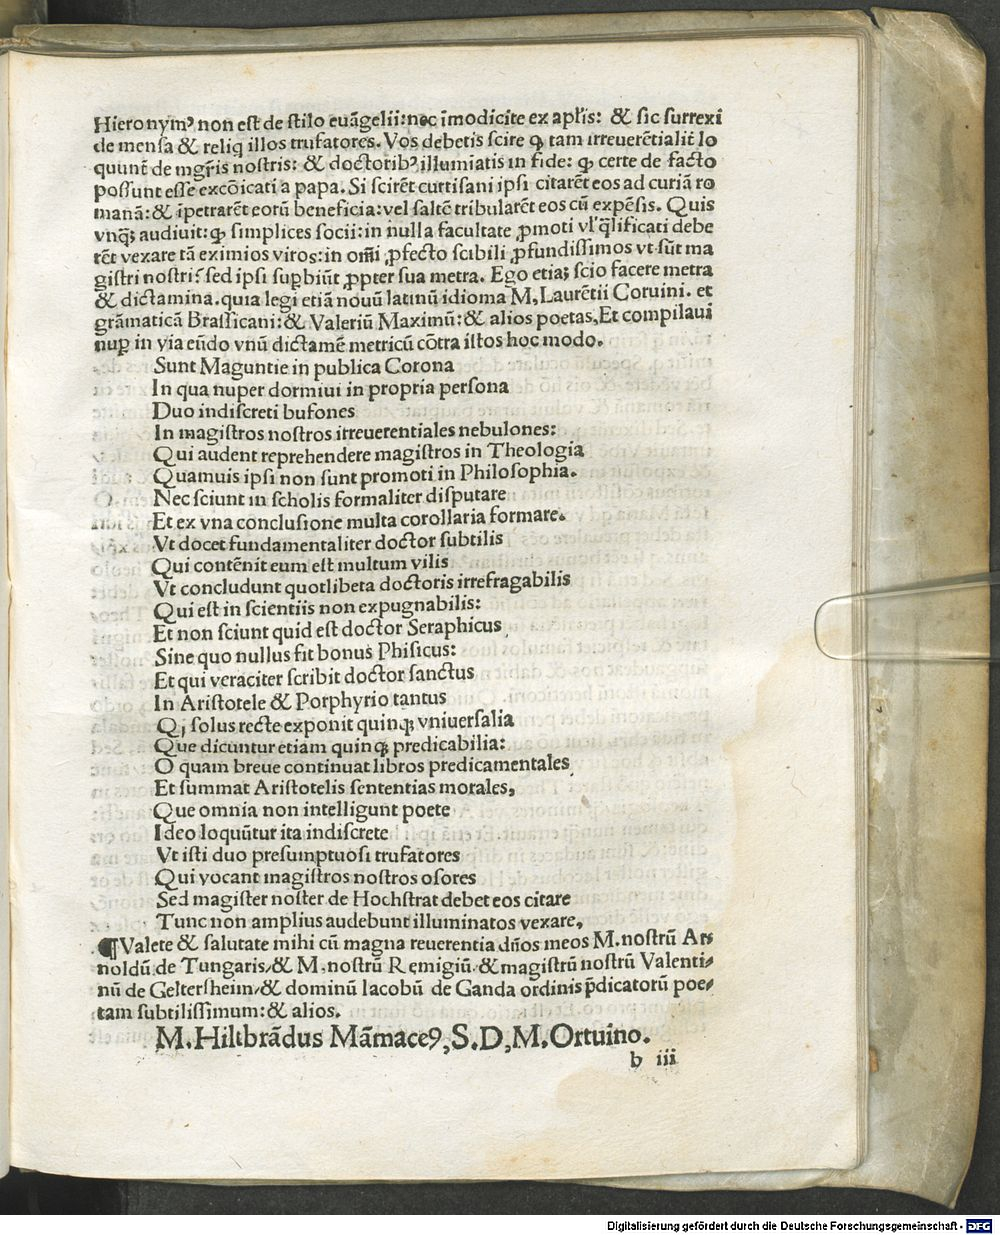 Hieronymꝰ non est de stilo euāgelii: nec īmodicite ex aplis: & sic surrexi
de mensa & reliq illos trufatores. Vos debetis scire ꝙ tam irreuerētialit lo
quunt de mgris nostris: & doctoribꝰ illumiatis in fide: ꝙ certe de facto
possunt esse excōicati a papa. Si scirēt curtisani ipsi citarēt eos ad curiā ro
manā: & īpetrarēt eorū beneficia: vel saltē tribularēt eos cū expēsis. Quis
vnqꝫ audiuit: ꝙ simplices socii: in nulla facultate ꝓmoti vl' q̄lificati debe
rēt vexare tā eximios viros: in om̄i ꝓfecto scibili ꝓfundissimos vt sūt ma
gistri nostri? sed ipsi supbiūt ꝓpter sua metra. Ego etiaꝫ scio facere metra
& dictamina. quia legi etiā nouū latinū idioma M, Laurētii Coruini. et
grāmaticā Brassicani: & Valeriū Maximū: & alios poetas, Et compilaui
nuꝑ in via eūdo vnū dictamē metricū cōtra istos hoc modo.
Sunt Maguntie in publica Corona
In qua nuper dormiui in propria persona
Duo indiscreti bufones
In magistros nostros irreuerentiales nebulones:
Qui audent reprehendere magistros in Theologia
Quamuis ipsi non sunt promoti in Philosophia.
Nec sciunt in scholis formaliter disputare
Et ex vna conclusione multa corollaria formare.
Vt docet fundamentaliter doctor subtilis
Qui contēnit eum est multum vilis
Vt concludunt quotlibeta doctoris irrefragabilis
Qui est in scientiis non expugnabilis:
Et non sciunt quid est doctor Seraphicus
Sine quo nullus fit bonus Phisicus:
Et qui veraciter scribit doctor sanctus
In Aristotele & Porphyrio tantus
Q; solus recte exponit quinqꝫ vniuersalia
Que dicuntur etiam quinqꝫ predicabilia:
O quam breue continuat libros predicamentales
Et summat Aristotelis sententias morales,
Que omnia non intelligunt poete
Ideo loquūtur ita indiscrete
Vt isti duo presumptuosi trufatores
Qui vocant magistros nostros osores
Sed magister noster de Hochstrat debet eos citare
Tunc non amplius audebunt illuminatos vexare,
¶ Valete & salutate mihi cū magna reuerentia dn̄os meos M. nostrū Ar⸗
noldū de Tungaris/ & M. nostrū Remigiū & magistrū nostrū Valenti⸗
nū de Geltersheim/ & dominū Iacobū de Ganda ordinis p̄dicatorū poe⸗
tam subtilissimum: & alios.
M. Hiltbrādus Māmaceꝰ, S. D, M. Ortuino.
b iii
Digitalisierung gefördert durch die Deutsche Forschungsgemeinschaft - DFG